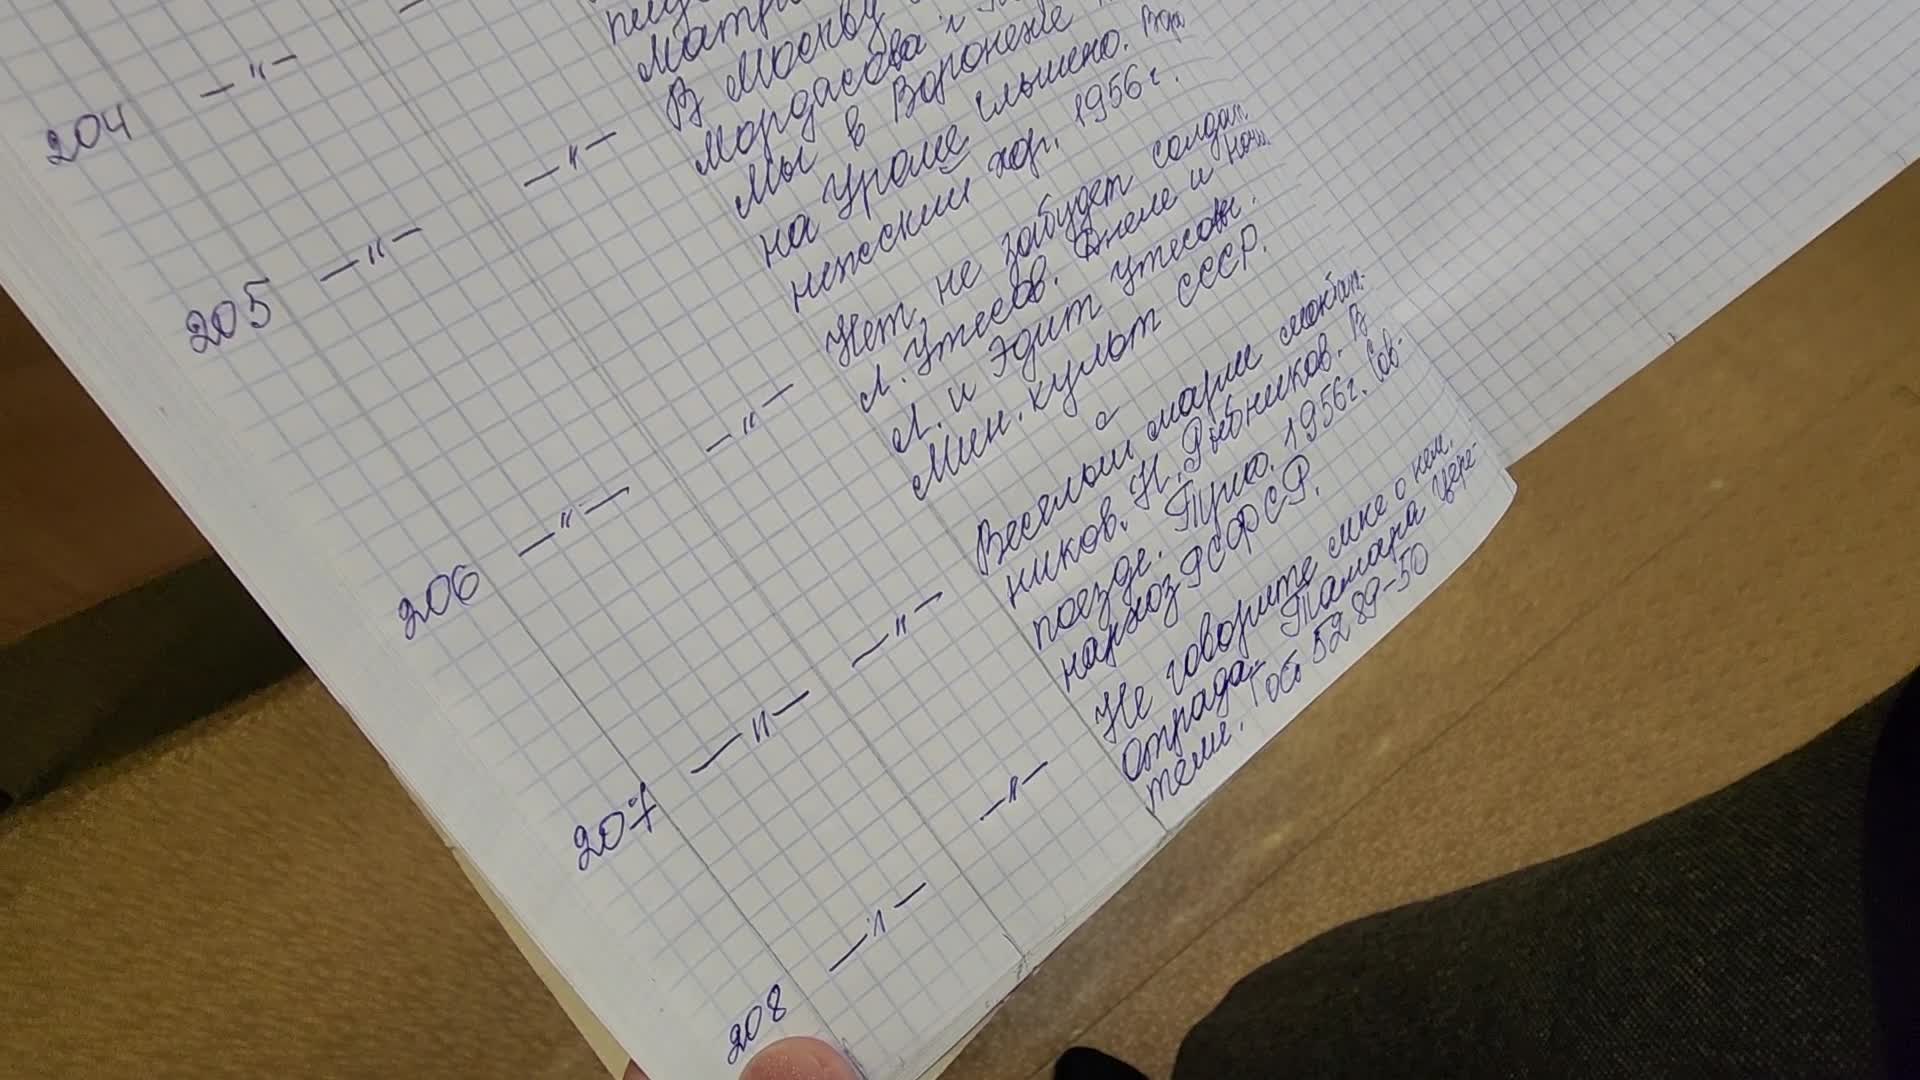 204 — " —
Матр
В Москву
Мордасова и
Мы в Воронеже
на Урале слышено. Воро
нежский хор. 1956г.
205 — " — — " —
Нет, не забудет солдат
Л. Утесов. Днем и ночью
Л. и Эдит Утесовы.
Мин. культ СССР.
206 — " — — " —
Веселый марш монтаж.
ников. Н. Рыбников. В
поезде. 1956г. Сов.
нархоз РСФСР.
207 — " — — " —
Не говорите мне о нем.
Отрада. Тамара Цере-
тели. Гост 5289-50
208 — " — — " —